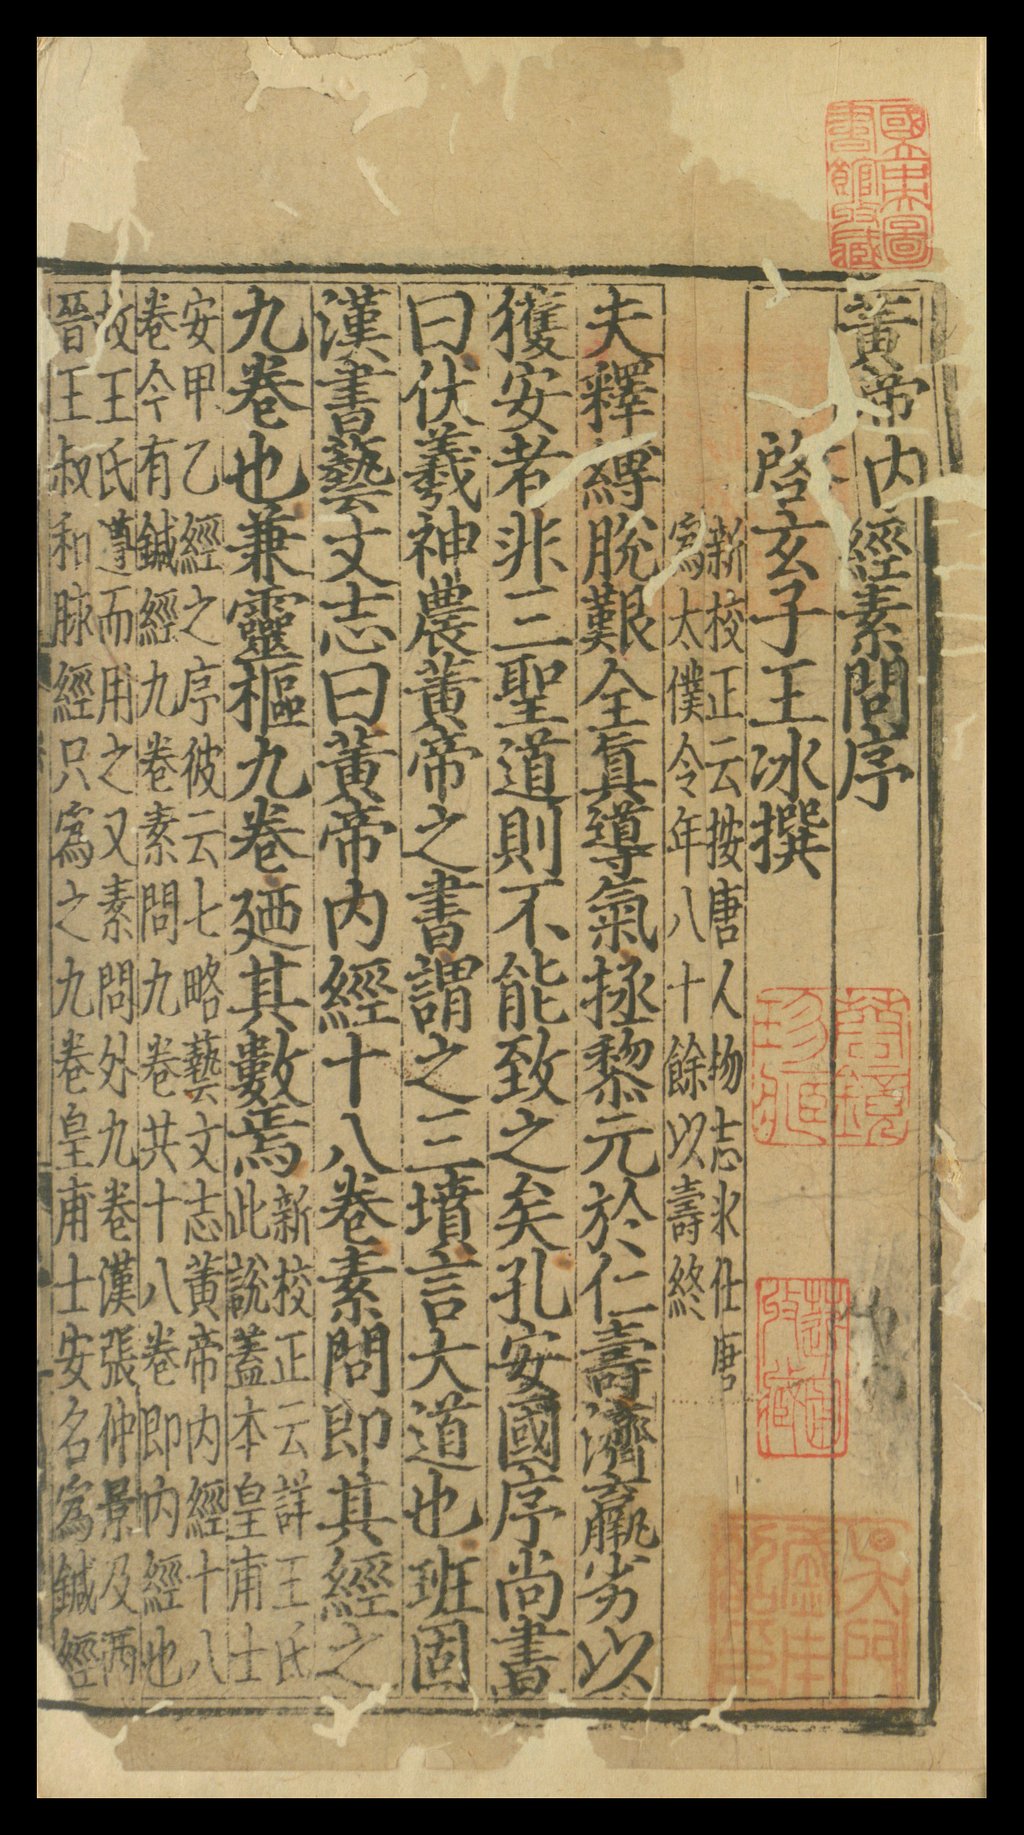 黃帝內經素問序
啓玄子王冰撰
新校正云按唐人物志冰仕唐
爲太僕令年八十餘以壽終
夫釋縛脫艱全真導氣拯黎元於仁壽濟羸劣以
獲安者非三聖道則不能致之矣孔安國序尚書
曰伏羲神農黃帝之書謂之三墳言大道也班固
漢書藝文志曰黃帝內經十八卷素問即其經之
九卷也兼靈樞九卷廼其數焉
新校正云詳王氏
此說蓋本皇甫士
安甲乙經之序彼云七略藝文志黃帝內經十八
卷今有鍼經九卷素問九卷共十八卷即內經也
故王氏遵而用之又素問外九卷漢張仲景及西
晉王叔和脉經只爲之九卷皇甫士安名爲鍼經
國立中央圖
書館收藏